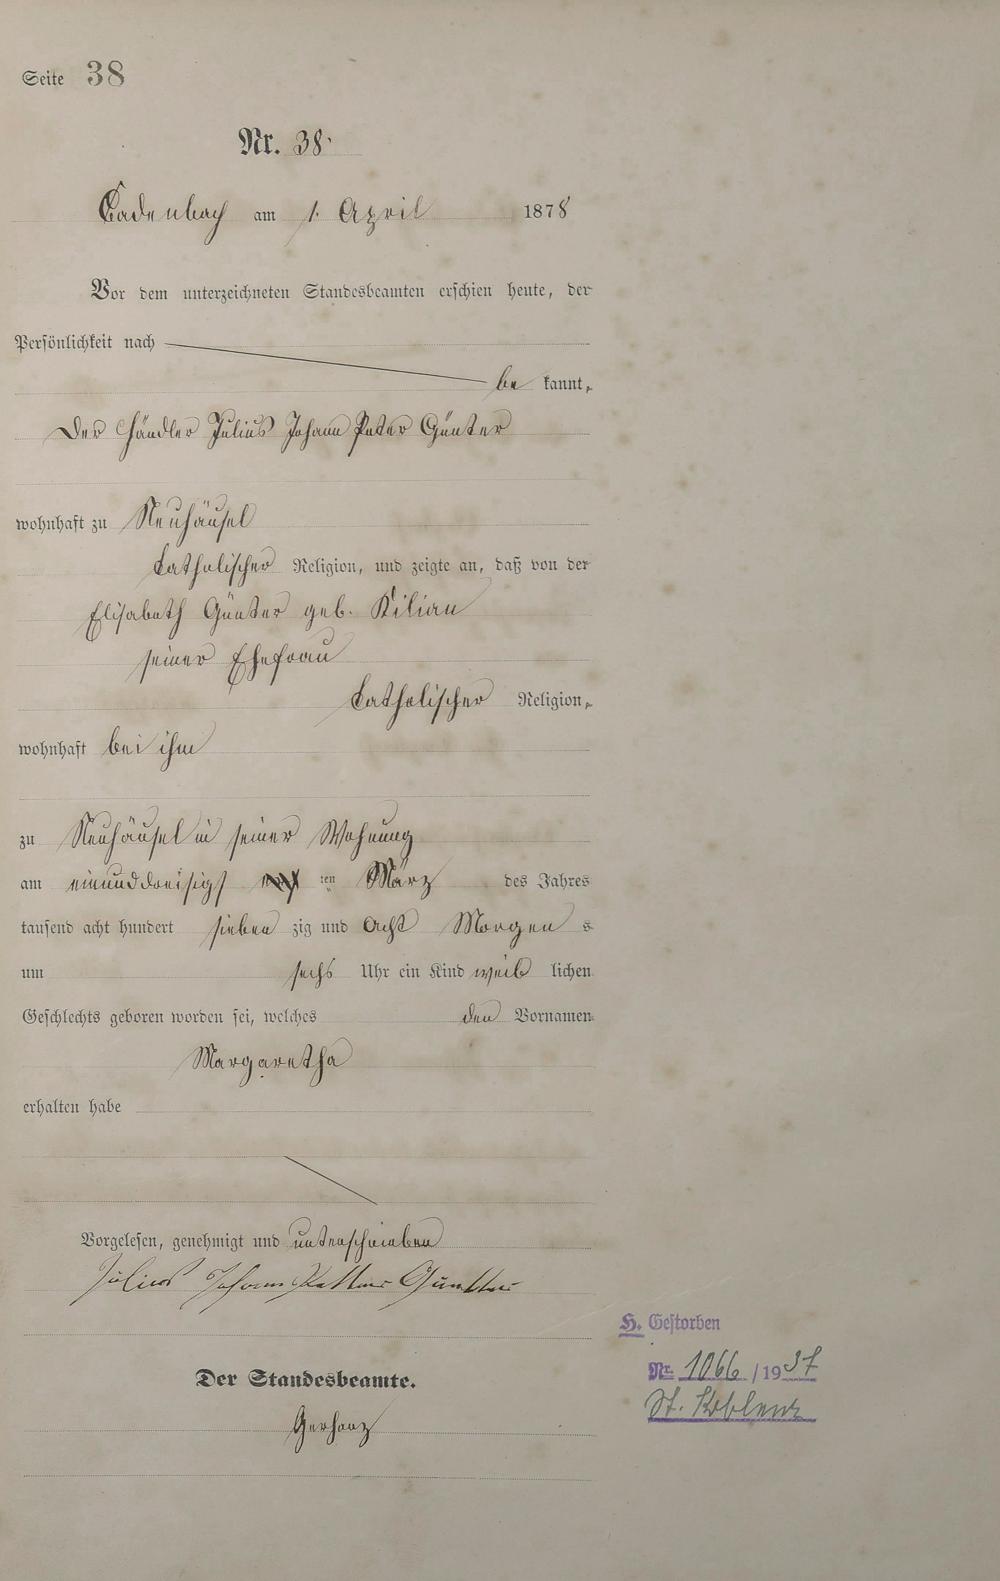 Seite 38
Nr. 38.
Cadenbach am 1. April 1878
Vor dem unterzeichneten Standesbeamten erschien heute, der
Persönlichkeit nach
be kannt,
Der Händler Julius Johann Peter Günter
wohnhaft zu Neuhäusel
katholischer Religion, und zeigte an, daß von der
Elisabeth Günter geb. Kilian
seiner Ehefrau
katholischer Religion,
wohnhaft bei ihm
zu Neuhäusel in seiner Wohnung
am einunddreisigst ten März des Jahres
tausend acht hundert sieben zig und acht Morgen s
um sechs Uhr ein Kind weib lichen
Geschlechts geboren worden sei, welches den Vornamen
Margaretha
erhalten habe
Vorgelesen, genehmigt und unterschrieben
Julius Johann Petter Günther
Der Standesbeamte.
Gerhanz
H. Gestorben
Nr. 1066/1937
St. Koblenz